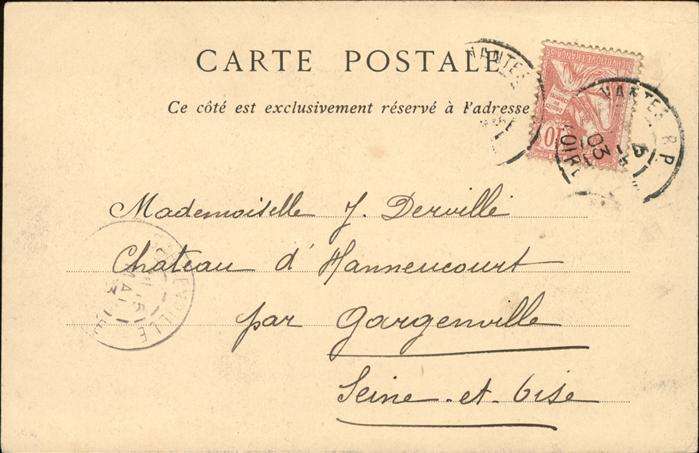 CARTE POSTALE
Ce côté est exclusivement réservé à l'adresse
NANTES
NANTES R.P.
LOIRE
5
03
10
Mademoiselle J. Derville
Chateau d'Hannencourt
par Gargenville
Seine-et-Oise
MAI
VILLE